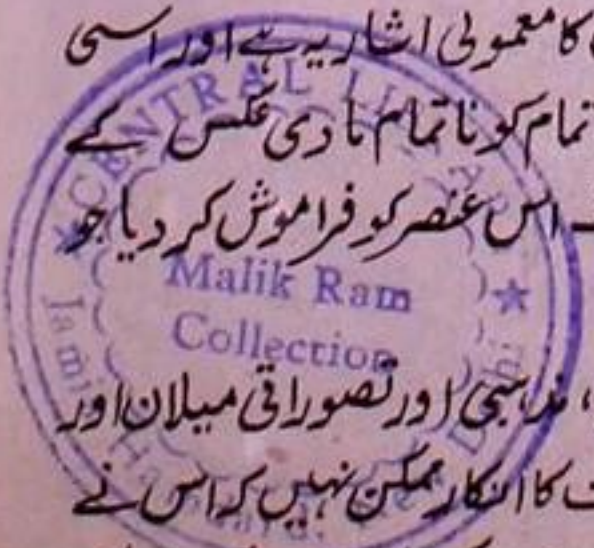 کا معمولی اشاریہ ہے اور اسی
تمام کو ناتمام مادی عکس کے
اس عنصر کو فراموش کر دیا جو
، مذہبی اور تصوراتی میلان اور
کا انکار ممکن نہیں کہ اس نے
CENTRAL
Malik Ram
Collection
Jami
Delhi